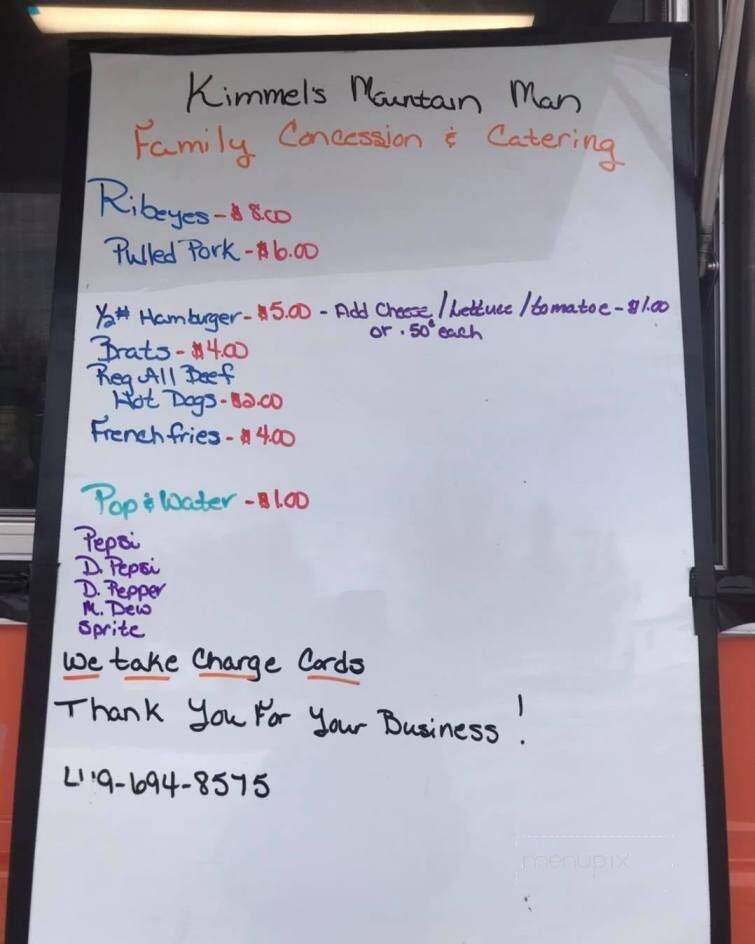 Kimmel's Mountain Man
Family Concession & Catering
Ribeyes - $8.00
Pulled Pork - $6.00
1/2# Hamburger - $5.00 - Add Cheese / Lettuce / tomatoe - $1.00
or .50¢ each
Brats - $4.00
Reg All Beef
Hot Dogs - $2.00
French fries - $4.00
Pop & Water - $1.00
Pepsi
D. Pepsi
D. Pepper
M. Dew
Sprite
We take Charge Cards
Thank You For Your Business!
419-694-8575
menupix